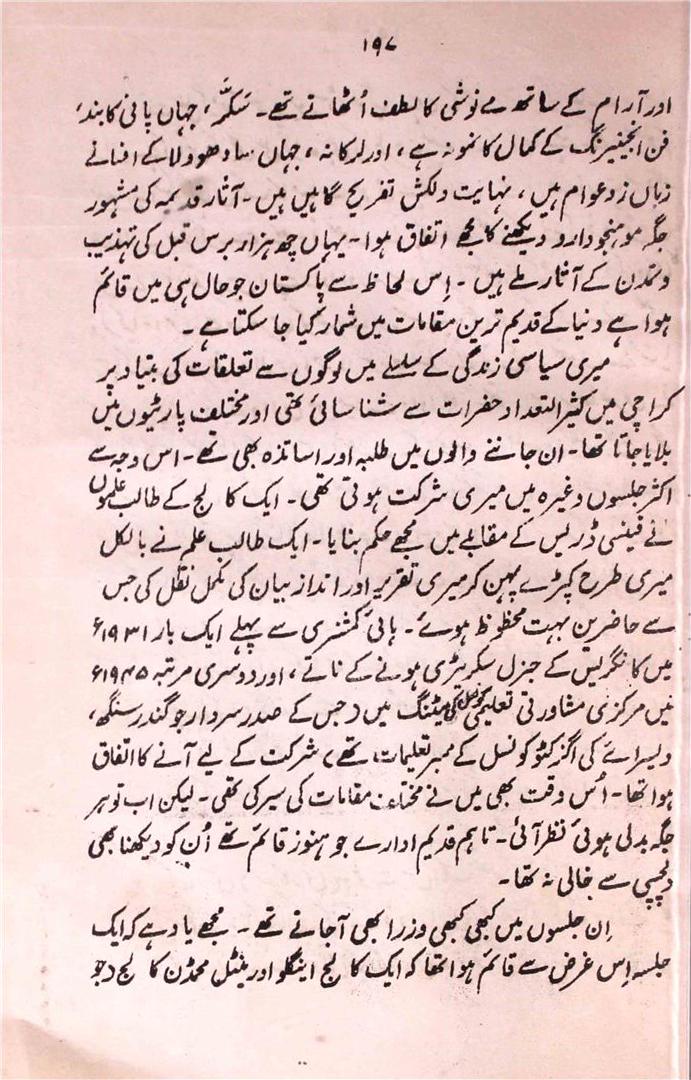 ۱۹۷
اور آرام کے ساتھ مے نوشی کا لطف اُٹھاتے تھے۔ سَکھَّر، جہاں پانی کا بند،
فن انجینیرنگ کے کمال کا نمونہ ہے، اور لرکانہ، جہاں سادھو ولا کے افسانے
زباں زدِ عوام ہیں، نہایت دلکش تفریح گاہیں ہیں۔ آثار قدیمہ کی مشہور
جگہ موہنجودارو دیکھنے کا مجھے اتفاق ہوا۔ یہاں چھ ہزار برس قبل کی تہذیب
و تمدن کے آثار ملے ہیں۔ اِس لحاظ سے پاکستان جو حال ہی میں قائم
ہوا ہے دنیا کے قدیم ترین مقامات میں شمار کیا جا سکتا ہے۔
میری سیاسی زندگی کے سلسلے میں لوگوں سے تعلقات کی بنیاد پر
کراچی میں کثیر التعداد حضرات سے شناسائی تھی اور مختلف پارٹیوں میں
بلایا جاتا تھا۔ ان جاننے والوں میں طلبہ اور اساتذہ بھی تھے۔ اس وجہ سے
اکثر جلسوں وغیرہ میں میری شرکت ہوتی تھی۔ ایک کالج کے طالب علموں
نے فینسی ڈریس کے مقابلے میں مجھے حکم بنایا۔ ایک طالب علم نے بالکل
میری طرح کپڑے پہن کر میری تقریر اور انداز بیان کی مکمل نقل کی جس
سے حاضرین بہت محظوظ ہوئے۔ ہائی کمشنری سے پہلے ایک بار ۱۹۳۱ء
میں کانگریس کے جنرل سکریٹری ہونے کے ناتے، اور دوسری مرتبہ ۱۹۴۵ء
میں مرکزی مشاورتی تعلیمی کونسل کی میٹنگ میں (جس کے صدر سردار جوگندر سنگھ،
ویسرائے کی اگزکٹو کونسل کے ممبر تعلیمات تھے) شرکت کے لیے آنے کا اتفاق
ہوا تھا۔ اُس وقت بھی میں نے مختلف مقامات کی سیر کی تھی۔ لیکن اب تو ہر
جگہ بدلی ہوئی نظر آئی۔ تاہم قدیم ادارے جو ہنوز قائم تھے اُن کو دیکھنا بھی
دلچسپی سے خالی نہ تھا۔
اِن جلسوں میں کبھی کبھی وزرا بھی آجاتے تھے۔ مجھے یاد ہے کہ ایک
جلسہ اِس غرض سے قائم ہوا تھا کہ ایک کالج اینگلو اورینٹل محمڈن کالج (جو